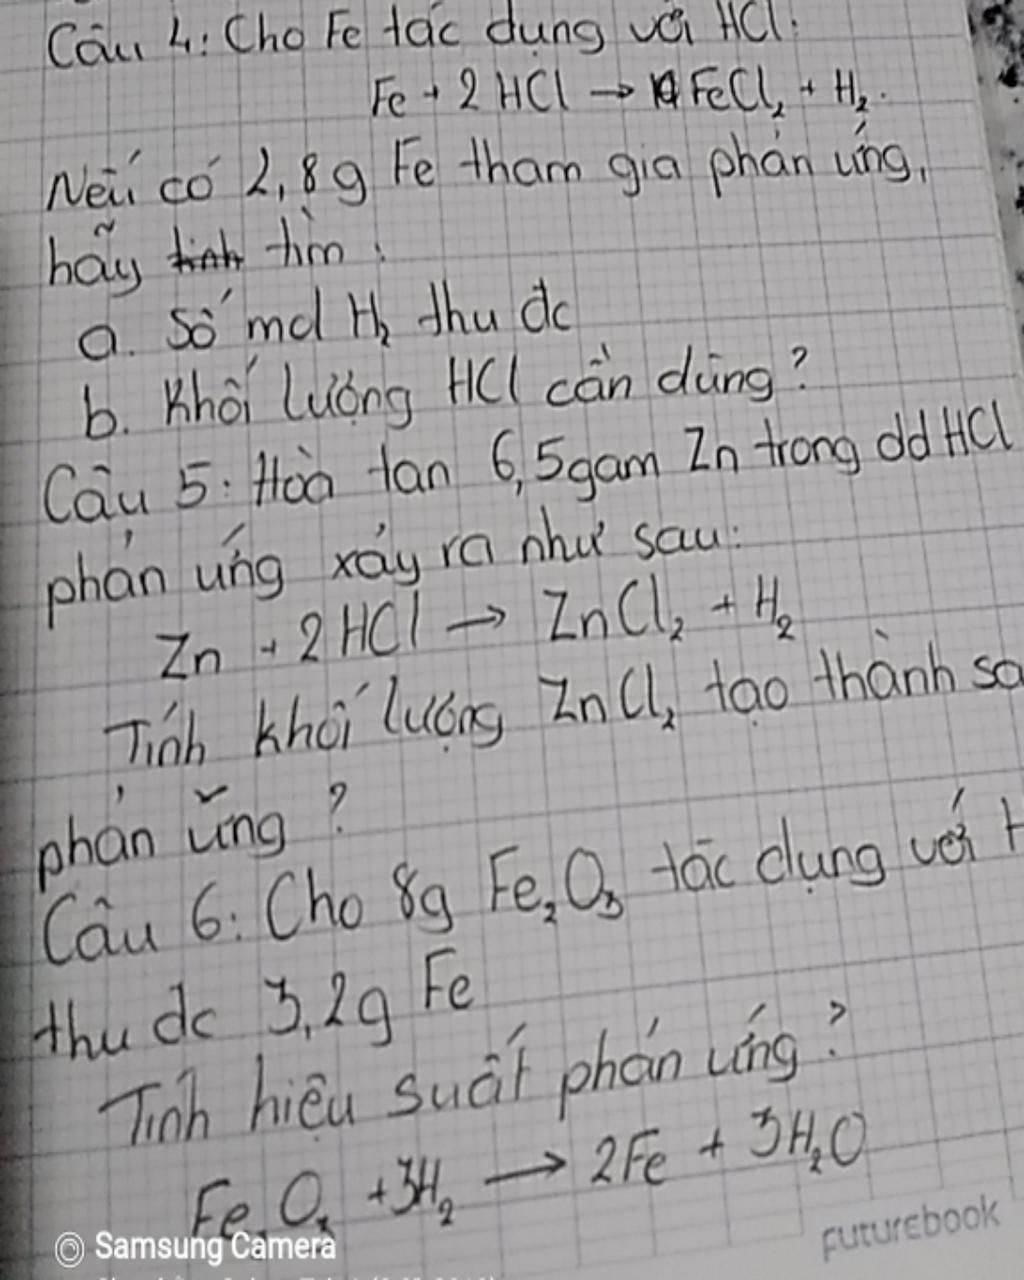 Câu 4: Cho Fe tác dụng với HCl:
Fe + 2 HCl → FeCl₂ + H₂.
Nếu có 2,8g Fe tham gia phản ứng,
hãy tính tìm:
a. Số mol H₂ thu đc
b. Khối lượng HCl cần dùng?
Câu 5: Hoà tan 6,5gam Zn trong dd HCl
phản ứng xảy ra như sau:
Zn + 2 HCl → ZnCl₂ + H₂
Tính khối lượng ZnCl₂ tạo thành
phản ứng?
Câu 6: Cho 8g Fe₂O₃ tác dụng với
thu đc 3,2g Fe
Tính hiệu suất phản ứng?
Fe₂O₃ + 3H₂ → 2Fe + 3H₂O
FUTUREBOOK
Samsung Camera